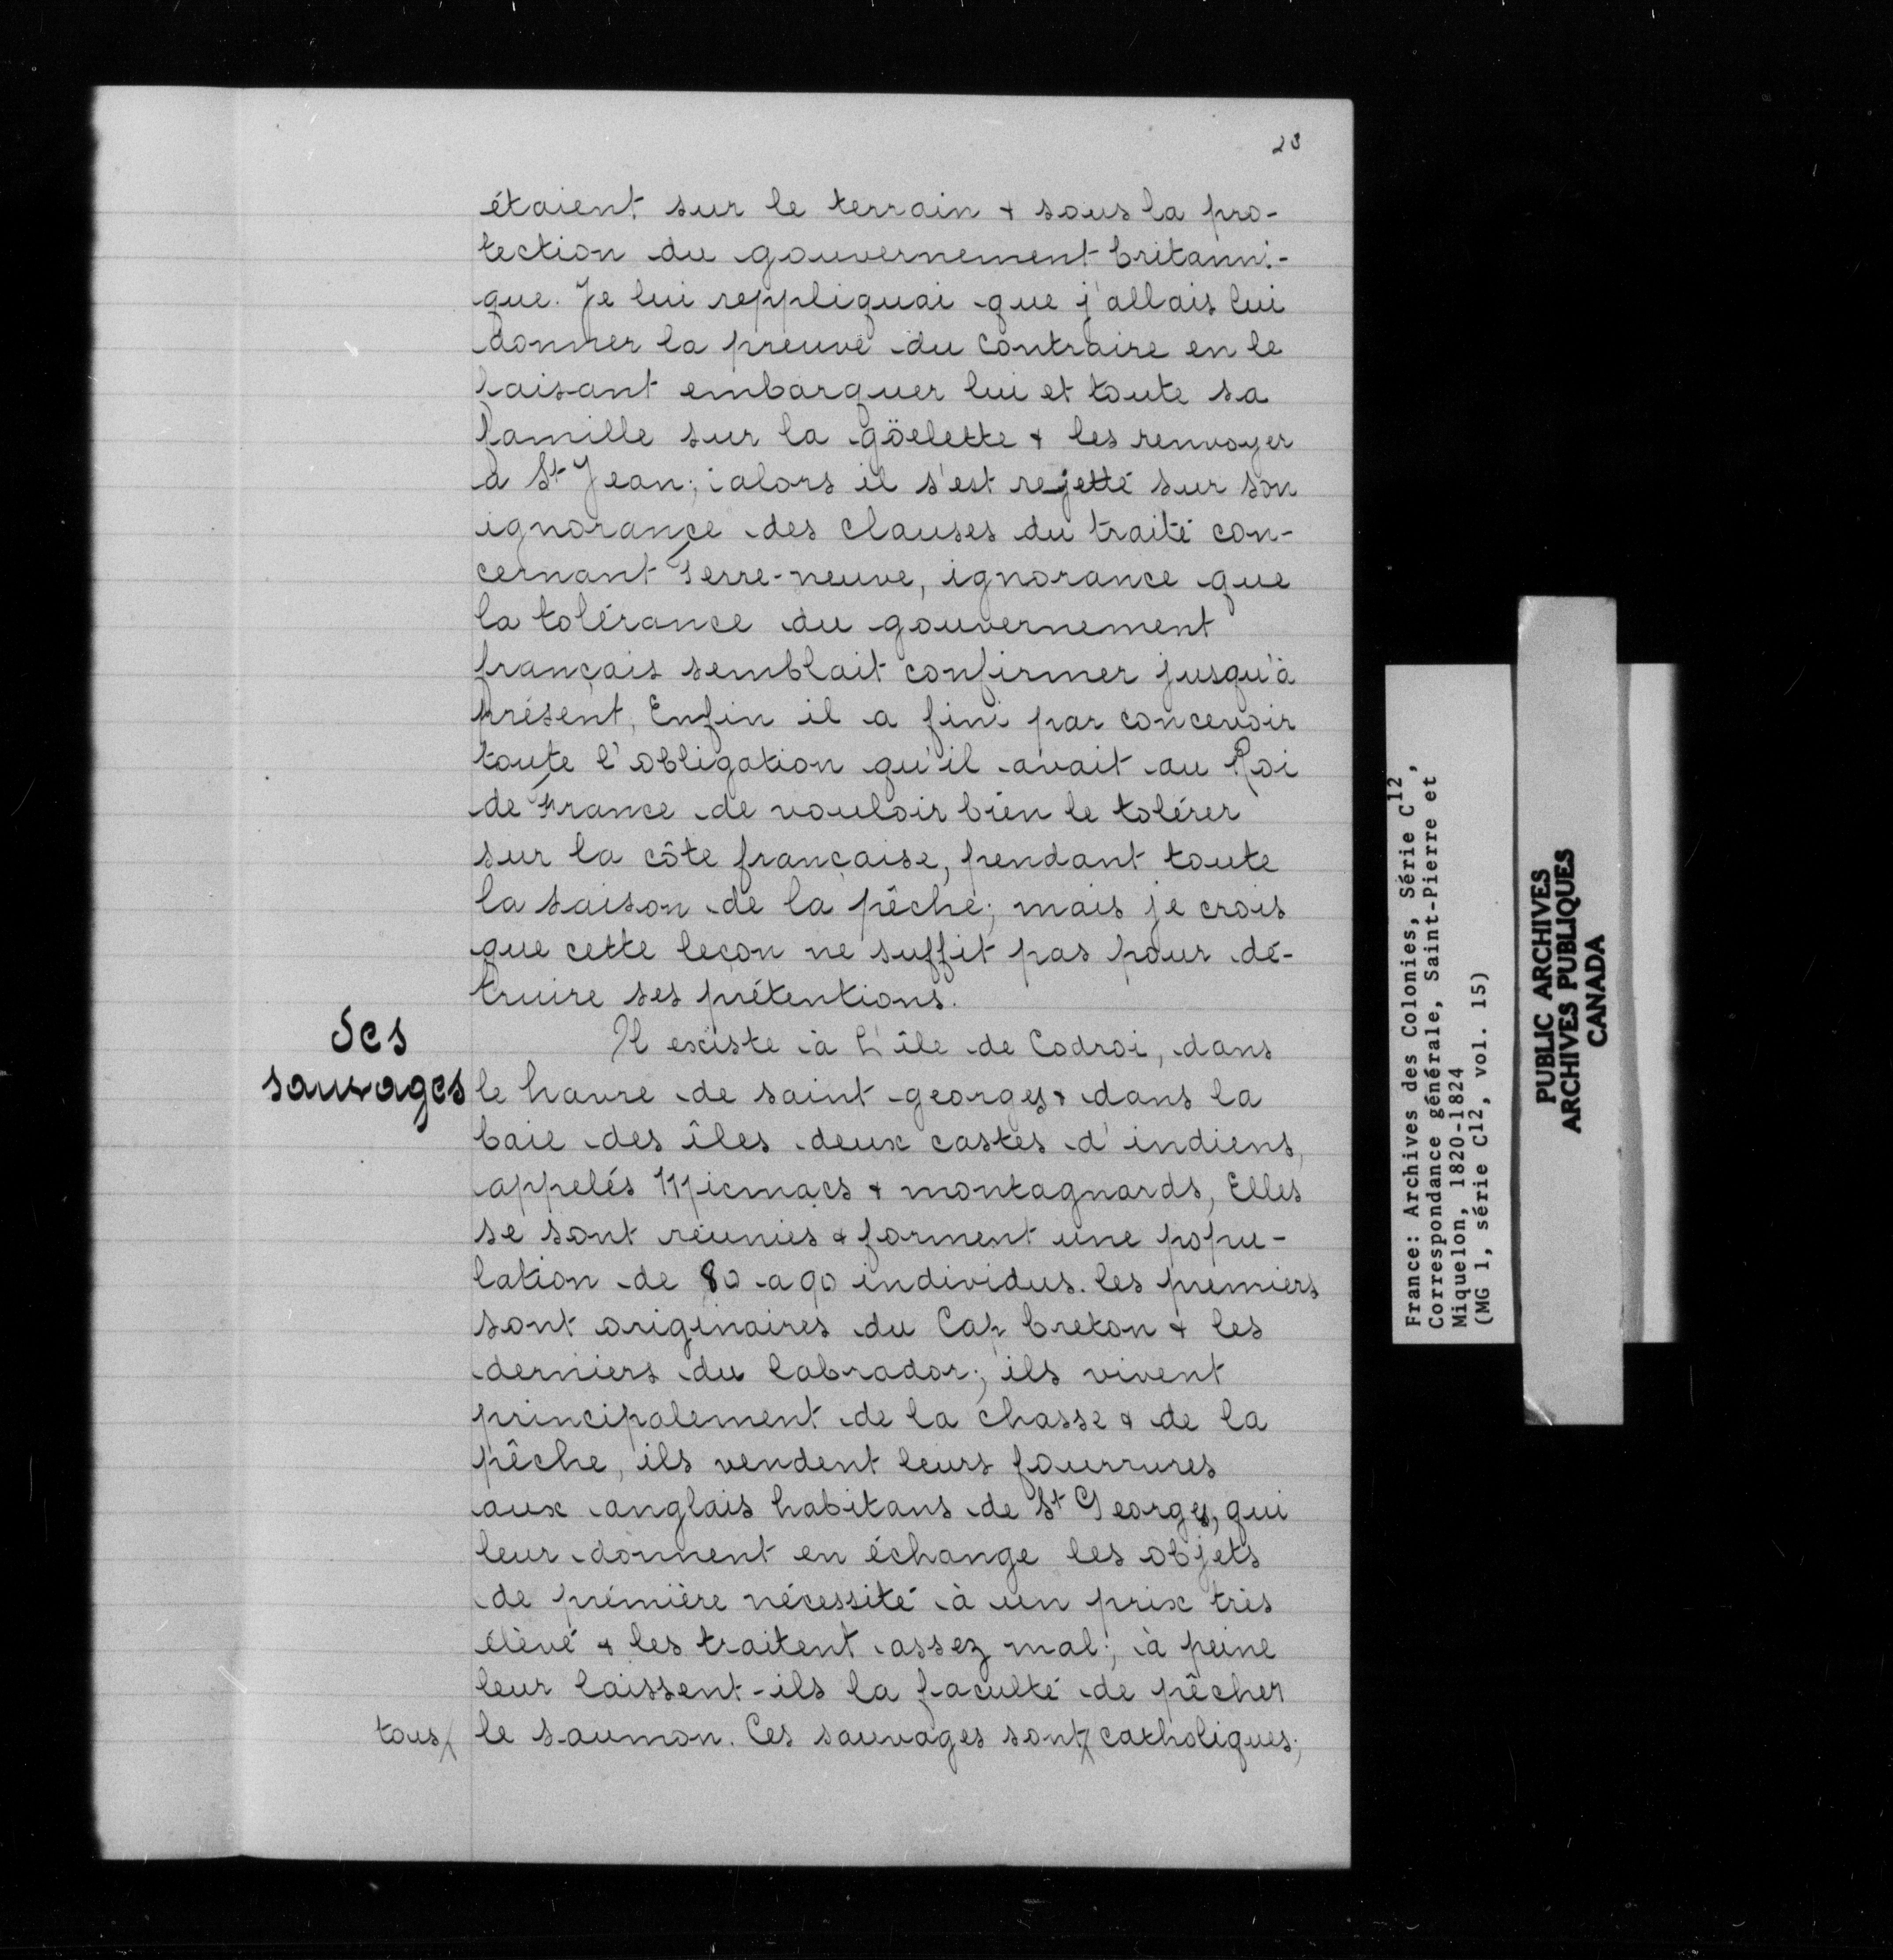 23
étaient sur le terrain & sous la pro-
tection du gouvernement britanni-
que. Je lui reppliquai que j'allais lui
donner la preuve du contraire en le
faisant embarquer lui et toute sa
famille sur la göelette & les renvoyer
à St Jean; alors il s'est rejetté sur son
ignorance des clauses du traité con-
cernant Terre-neuve, ignorance que
la tolérance du gouvernement
français semblait confirmer jusqu'à
présent, Enfin il a fini par concevoir
toute l'obligation qu'il avait au Roi
de France de vouloir bien le tolérer
sur la côte française, pendant toute
la saison de la pêche; mais je crois
que cette leçon ne suffit pas pour dé-
truire ses prétentions.
des
sauvages
Il existe à L'île de Codroi, dans
le havre de saint georges & dans la
baie des îles deux castes d'indiens,
appelés Micmacs & montagnards, Elles
se sont réunies & forment une popu-
lation de 80 a 90 individus. les premiers
sont originaires du Cap breton & les
derniers du labrador; ils vivent
principalement de la chasse & de la
pêche, ils vendent leurs fourrures
aux anglais habitans de St Georges, qui
leur donnent en échange les objets
de première nécessité à un prix très
élèvé & les traitent assez mal; à peine
leur laissent-ils la faculté de pêcher
tous
le saumon. Ces sauvages sont catholiques;
France: Archives des Colonies, Série C12,
Correspondance générale, Saint-Pierre et
Miquelon, 1820-1824
(MG 1, série C12, vol. 15)
PUBLIC ARCHIVES
ARCHIVES PUBLIQUES
CANADA